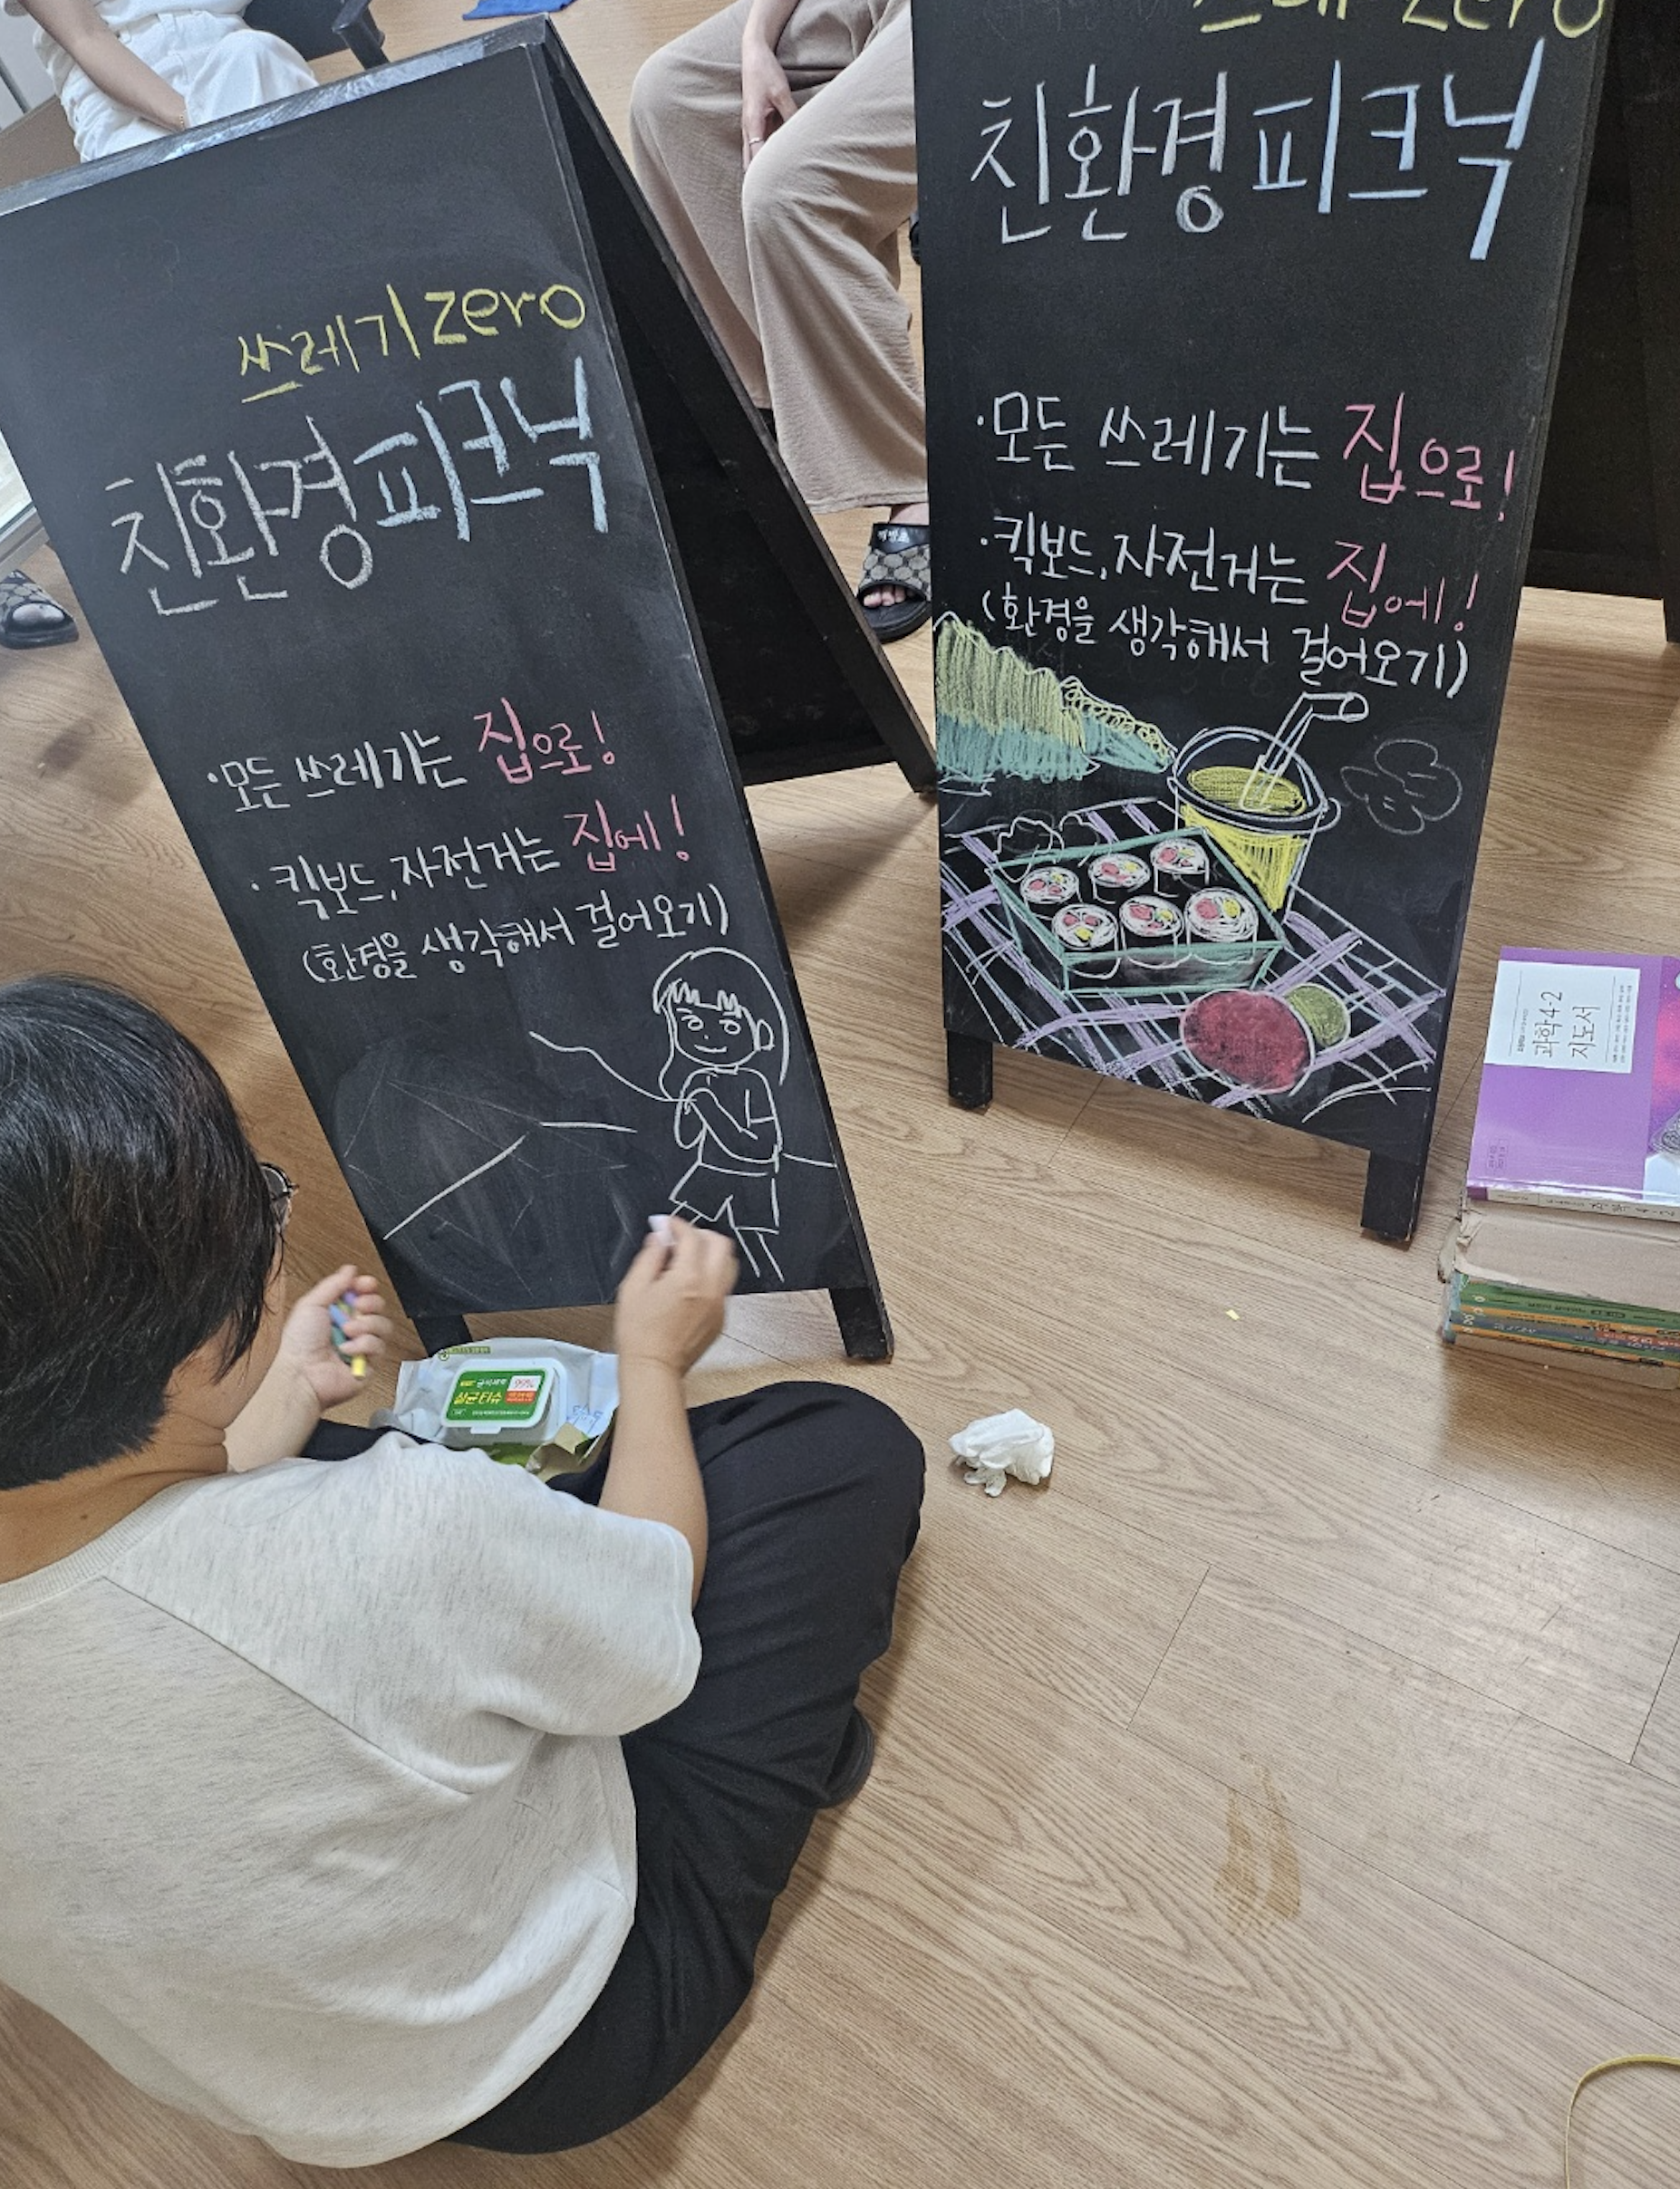 쓰레기 zero
친환경 피크닉
· 모든 쓰레기는 집으로!
· 킥보드, 자전거는 집에!
(환경을 생각해서 걸어오기)
zero
친환경 피크닉
· 모든 쓰레기는 집으로!
· 킥보드, 자전거는 집에!
(환경을 생각해서 걸어오기)
과학 4-2
지도서
99%
살균티슈